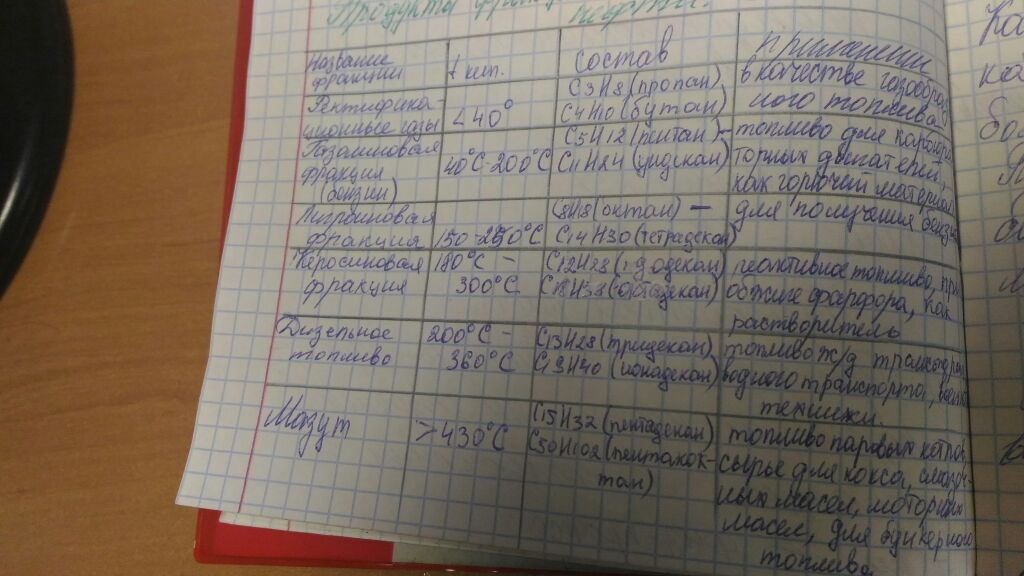 Продукты
нефти.
Название фракции
t кип.
Состав
Ректифика-
ционные газы
<40°
C3H8 (пропан)
C4H10 (бутан)
в качестве газообраз
ного топлива
Газолиновая
фракция
(бензин)
40°C-200°C
C5H12 (пентан) -
C11H24 (ундекан)
топливо для карбюра
торных двигателей,
как горючий материал
Лигроиновая
фракция
150-250°C
C8H18 (октан) —
C14H30 (тетрадекан)
для получения бензина
Керосиновая
фракция
180°C -
300°C
C12H28 (додекан)
C18H38 (октадекан)
реактивное топливо, при
обжиге фарфора, как
растворитель
Дизельное
топливо
200°C -
360°C
C13H28 (тридекан)
C19H40 (нонадекан)
топливо ж/д
одного транспорта,
техники.
Мазут
>430°C
C15H32 (пентадекан)
C50H102 (пентакок-
тан)
топливо паровых котлов
сырье для кокса,
ных масел, моторных
масел, для бункерного
топлива